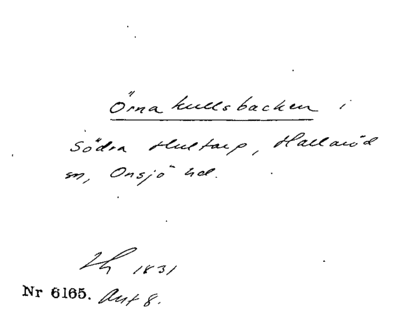 Örnakullsbacken i
Södra Hultarp, Hallaröd
sn, Onsjö hd.
Lh 1831
Nr 6165. Ant 8.